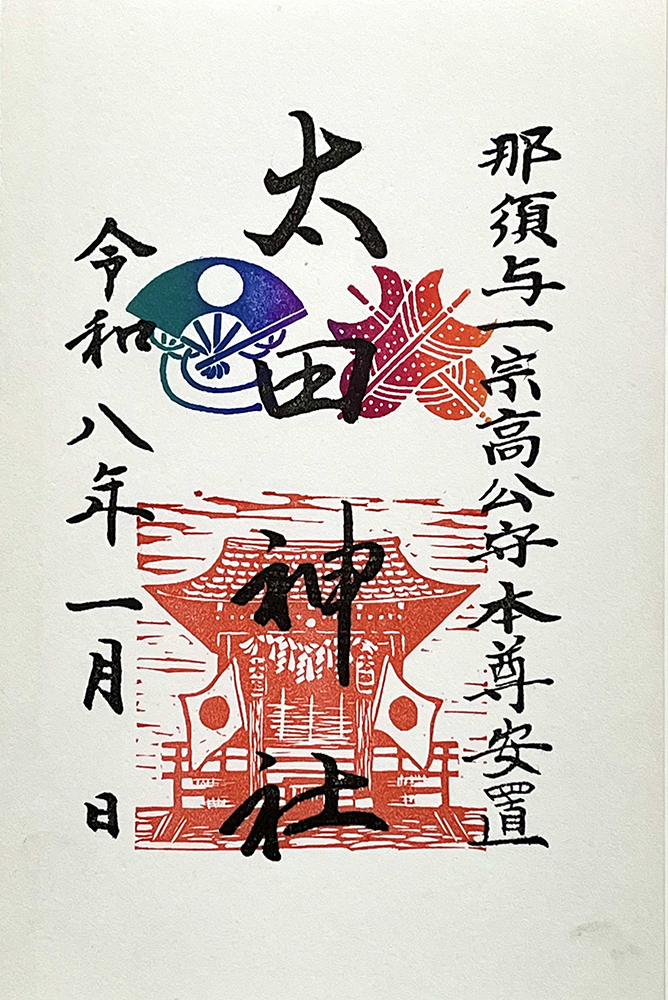 那須与一宗高公守本尊安置
太田神社
令和八年一月 日